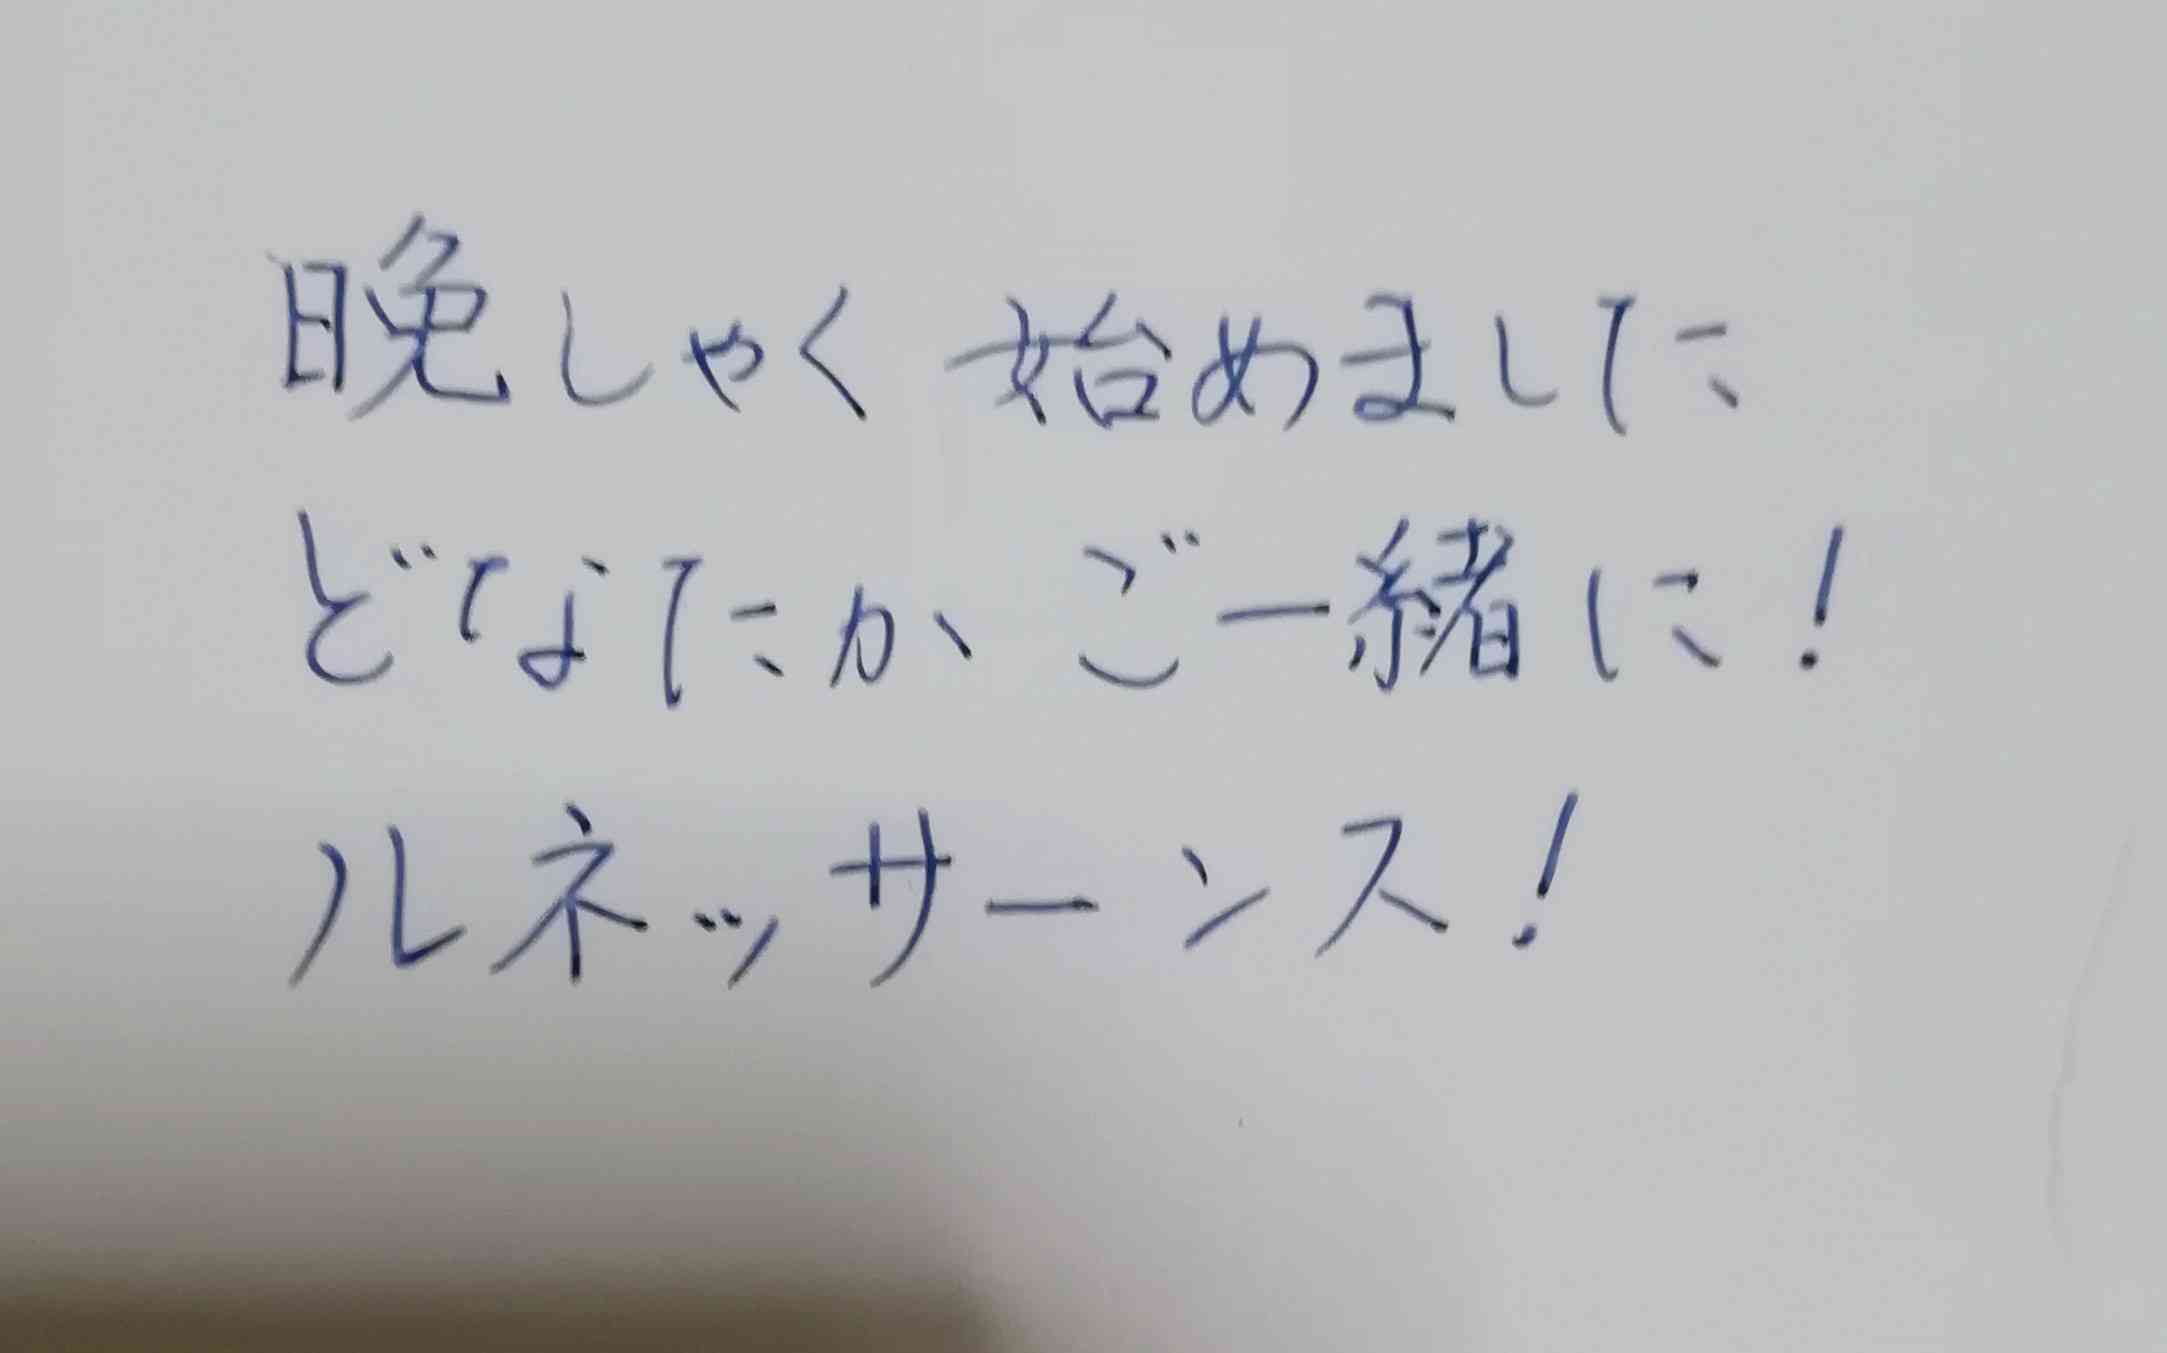 晩しゃく 始めました
どなたか ご一緒に!
ルネッサーンス!